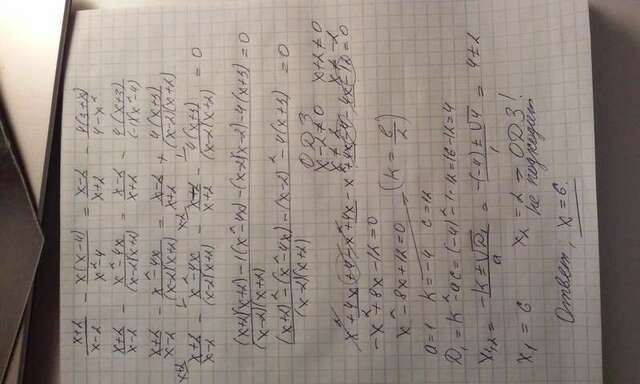 (x+2)/(x-2) - x(x-4)/(x²-4) = (x-2)/(x+2) - 4(3+x)/(4-x²)
(x+2)/(x-2) - (x²-4x)/((x-2)(x+2)) = (x-2)/(x+2) - 4(x+3)/((-1)(x²-4))
(x+2)/(x-2) - (x²-4x)/((x-2)(x+2)) = (x-2)/(x+2) + 4(x+3)/((x-2)(x+2))
x+2 (x+2)/(x-2) - 1 (x²-4x)/((x-2)(x+2)) - x-2 (x-2)/(x+2) - 1 4(x+3)/((x-2)(x+2)) = 0
((x+2)(x+2)-1(x²-4x)-(x-2)(x-2)-4(x+3))/((x-2)(x+2)) = 0
((x+2)²-(x²-4x)-(x-2)²-4(x+3))/((x-2)(x+2)) = 0
ОДЗ
x-2≠0 x+2≠0
x≠2 x≠-2
x²+4x+4-x²+4x-x²+4x-4-4x-12=0
-x²+8x-12=0
x²-8x+12=0 (K = b/2)
a=1 K=-4 c=12
D₁=K²-ac=(-4)²-1·12=16-12=4
x₁,₂ = (-K±√D₁)/a = (-(-4)±√4)/1 = 4±2
x₁ = 6 x₂ = 2 → ОДЗ!
не подходит
Ответ, x=6.